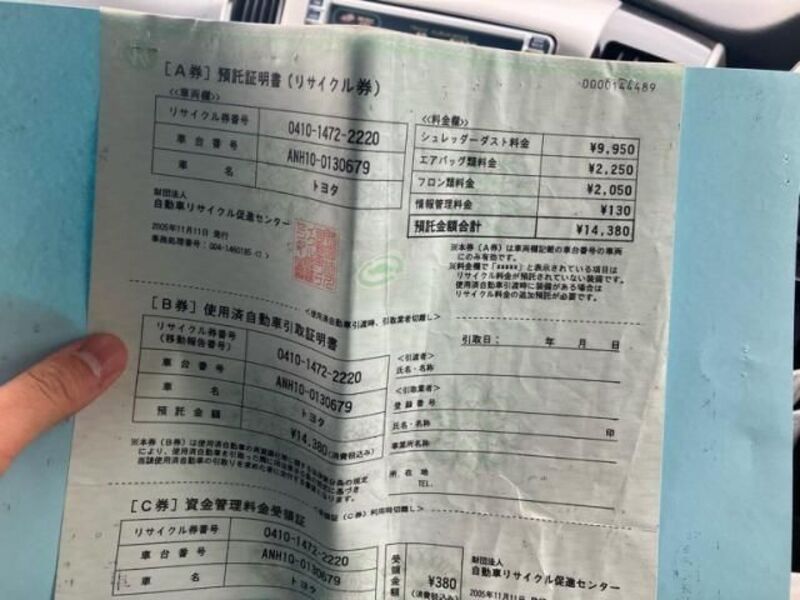 0000144489
[A券] 預託証明書(リサイクル券)
<<車両欄>>
リサイクル券番号 0410-1472-2220
車台番号 ANH10-0130679
車名 トヨタ
<<料金欄>>
シュレッダーダスト料金 ¥9,950
エアバッグ類料金 ¥2,250
フロン類料金 ¥2,050
情報管理料金 ¥130
預託金額合計 ¥14,380
財団法人
自動車リサイクル促進センター
2005年11月11日 発行
※本券(A券)は車両欄記載の車台番号の車両
にのみ有効です。
※料金欄で「*****」と表示されている項目は
リサイクル料金が預託されていない装備です。
使用済自動車引渡時に装備がある場合は
リサイクル料金の追加預託が必要です。
<使用済自動車引渡時、引取業者切離し>
[B券] 使用済自動車引取証明書
リサイクル券番号
(移動報告番号) 0410-1472-2220
車台番号 ANH10-0130679
車名 トヨタ
預託金額 ¥14,380(消費税込み)
引取日: 年 月 日
<引渡者>
氏名・名称
<引取業者>
登録番号
氏名・名称 印
事業所名称
所在地
TEL.
[C券] 資金管理料金受領証
リサイクル券番号 0410-1472-2220
車台番号 ANH10-0130679
車名 トヨタ
受領金額 ¥380
(消費税込み)
財団法人
自動車リサイクル促進センター
2005年11月11日